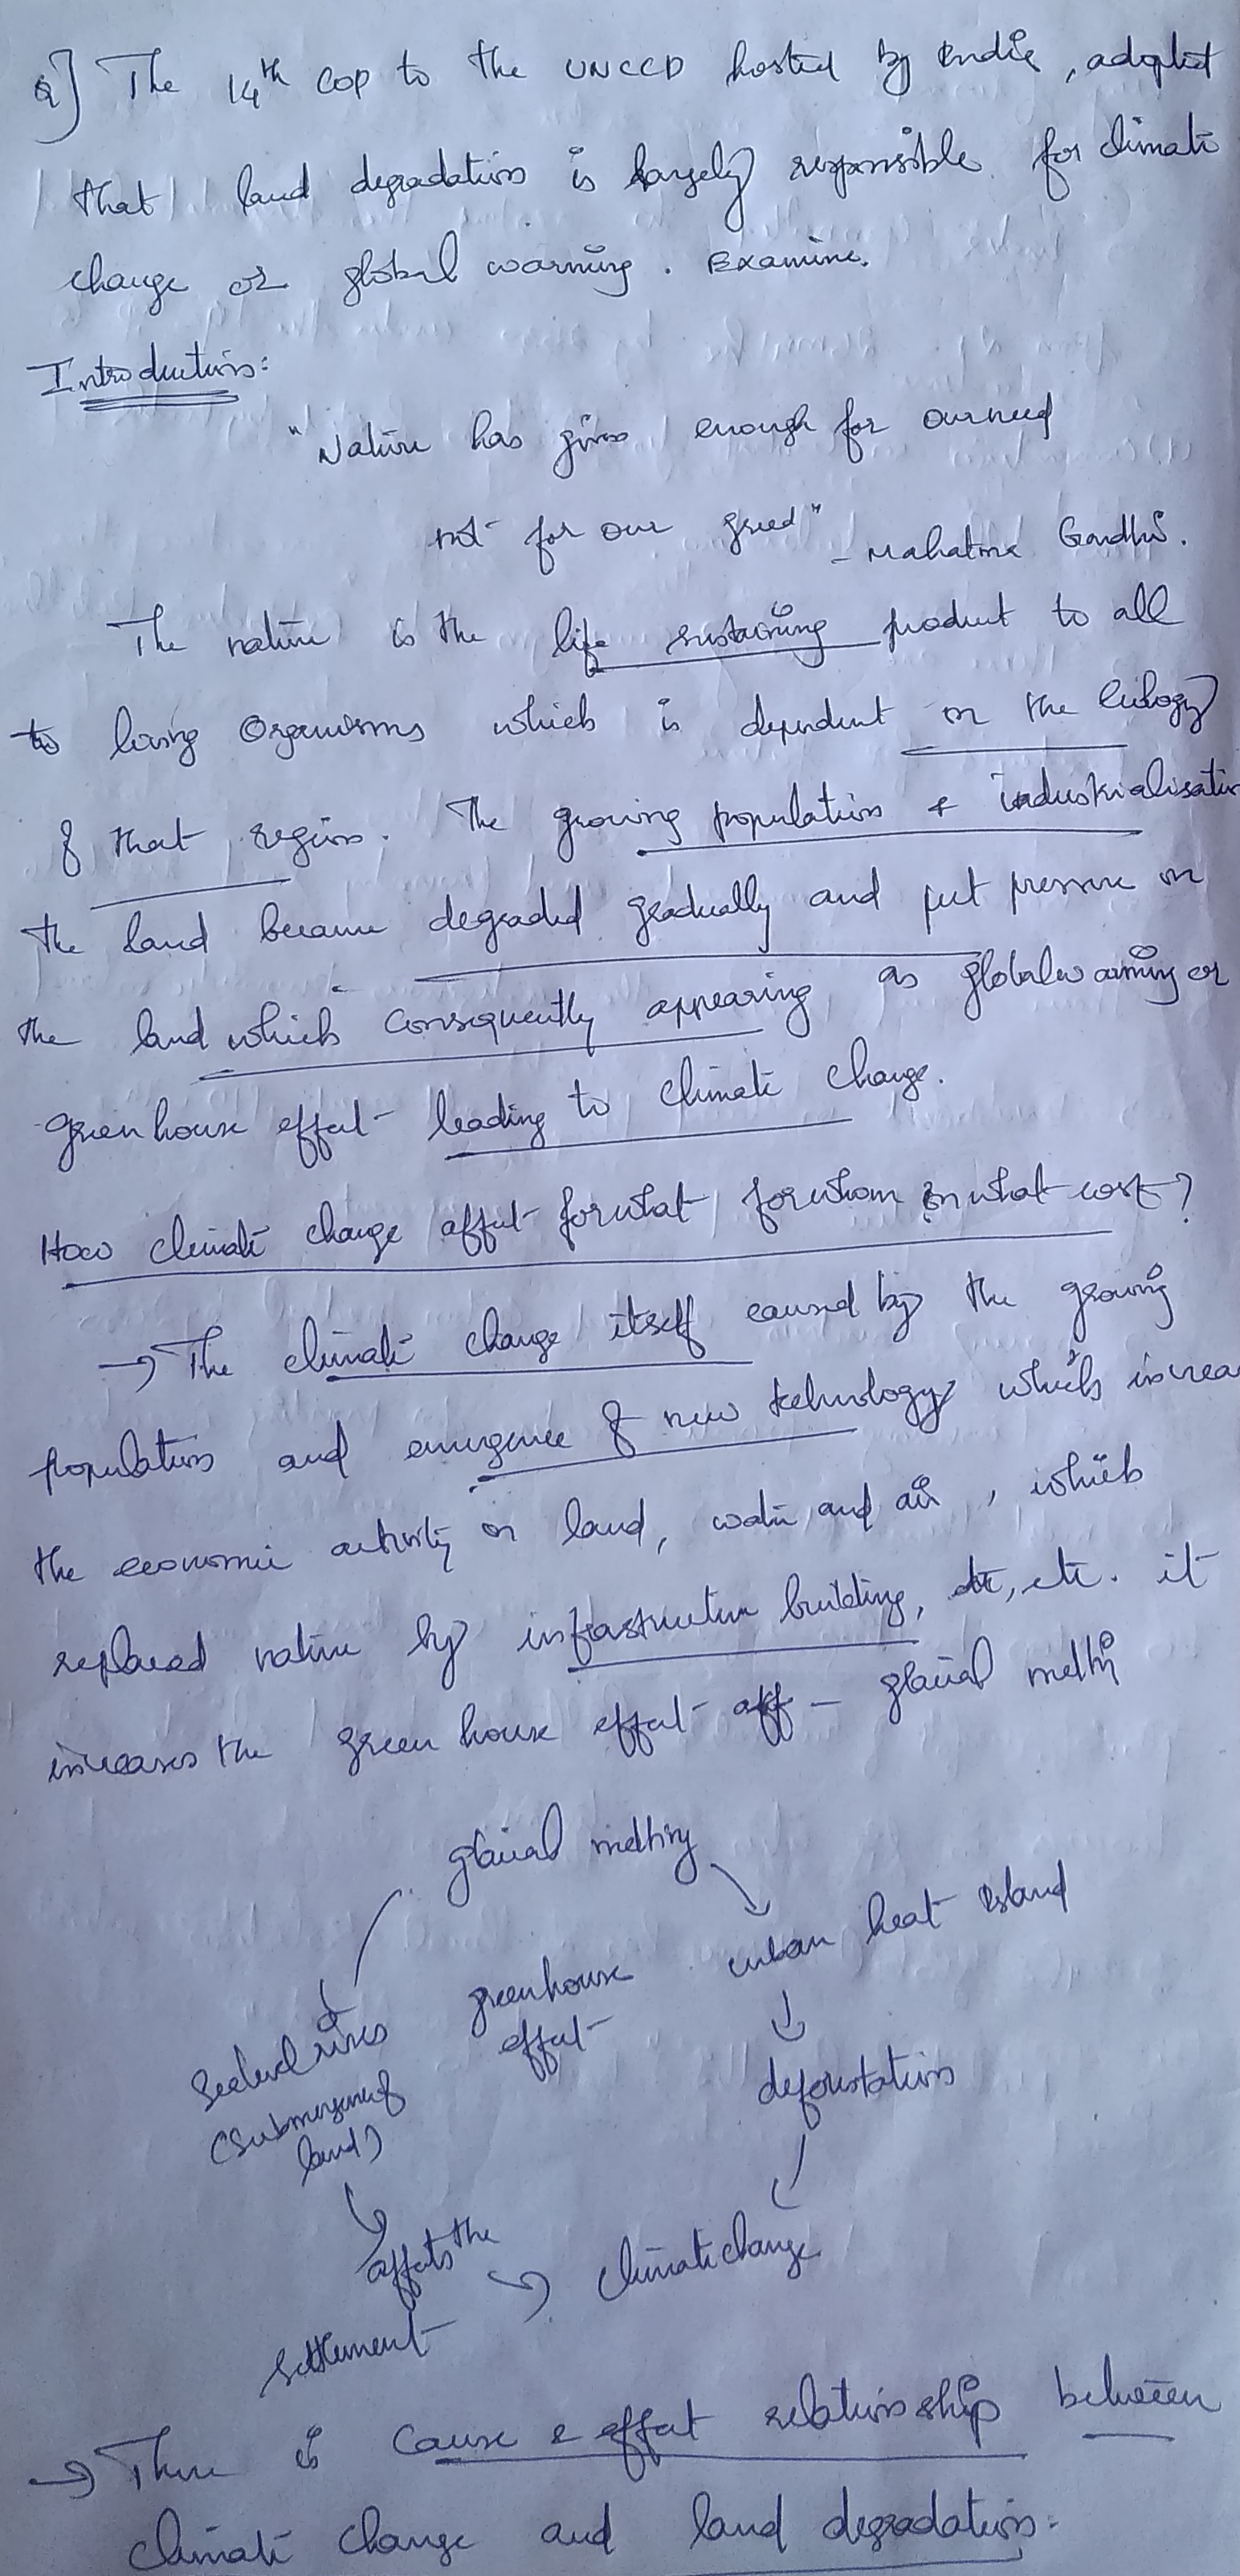 Q] The 14th COP to the UNCCD hosted by India, adopted
that land degradation is largely responsible for climate
change or global warming. Examine.
Introduction:
"Nature has given enough for our need
not for our greed" - Mahatma Gandhi.
The nature is the life sustaining product to all
to living Organisms which is dependent on the ecology
of that region. The growing population & industrialisation
the land became degraded gradually and put pressure on
the land which consequently appearing as global warming or
greenhouse effect leading to climate change.
How climate change affect for what, for whom & in what cost?
→ The climate change itself caused by the growing
population and emergence of new technology which increa
the economic activity on land, water and air, which
replaced nature by infrastructure building, etc, etc. it
increases the green house effect aff - glacial melting
glacial melting
greenhouse effect
urban heat island
Sealevel rises
(submergence of
land)
deforestation
affects the
settlement
climate change
→ There is cause & effect relationship between
climate change and land degradation: